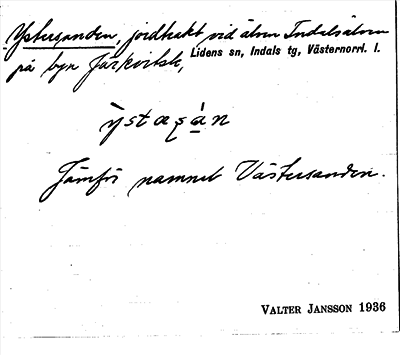 Ystersanden, jordtrakt vid älven Indalsälven
på byn Järkvitsle, Lidens sn, Indals tg, Västernorrl. l.
ỳstaṣá̱n
Jämför namnet Västersanden.
VALTER JANSSON 1936